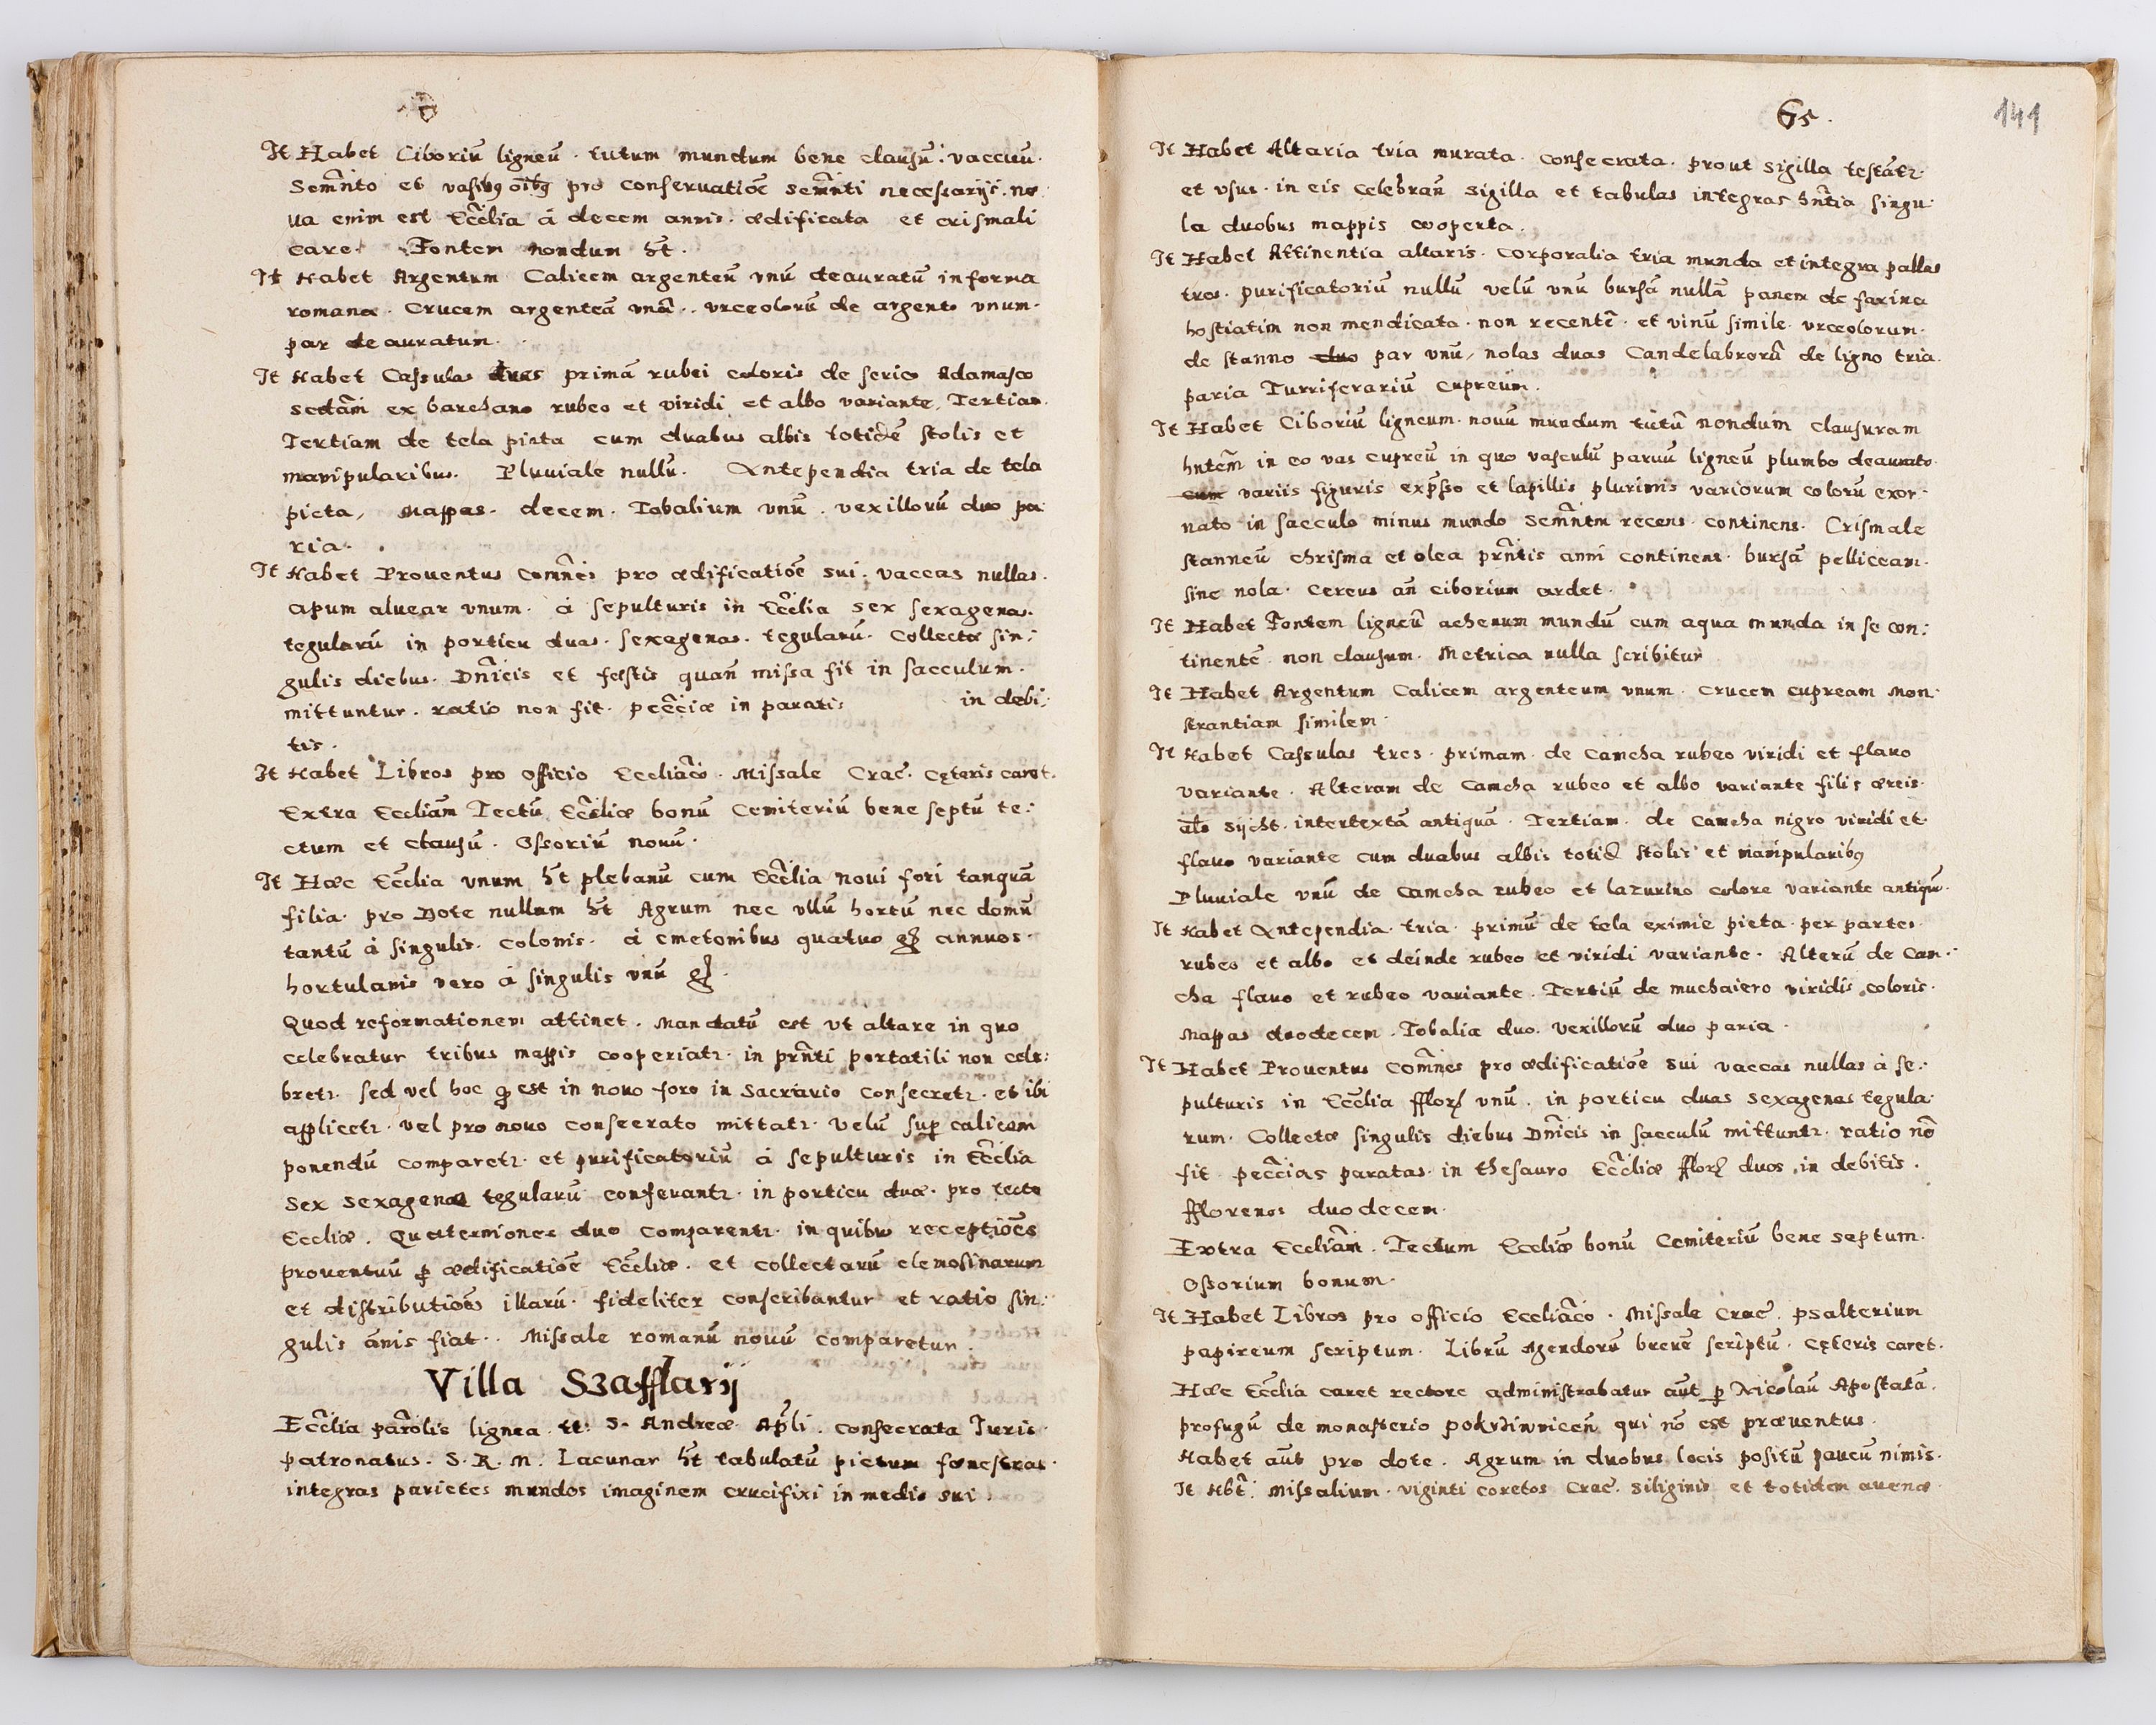 It Habet Ciboriũ ligneũ. tutum mundum bene clausũ. vaccuũ.
Sẽmnto et vasibꝫ oĩbꝫ pro conseruatiõe sẽmnti necessarijs. no
ua enim est Ecc̃lia à decem annis. ædificata et crismali
care. Fontem nondum h̃t.
It Habet Argentum Calicem argenteũ vnũ deauratũ in forma
romana. Crucem argenteã vnã.. vrceolorũ de argento vnum.
par de auratum.
It Habet Cassulas duas primã rubei coloris de serico Adamasco
Sedãm ex barchano rubeo et viridi et albo variante, Tertiam.
Tertiam de tela picta cum duabus albis totidẽ stolis et
manipularibus. Pluuiale nullũ. Antependia tria de tela
picta, Mappas. decem. Tobalium vnũ. vexillorũ duo pa:
ria.
It Habet Prouentus com̃nes pro ædificatiõe sui. vaccas nullas.
apum aluear vnum. à sepulturis in Ecc̃lia sex sexagenas.
tegularũ in porticu duas. sexagenas. tegularũ. Collectæ sin:
gulis diebus. Dñicis et fæstis quañ missa fit in sacculum.
mittuntur. ratio non fit. pecc̃iæ in paratis in debi:
tis.
It Habet Libros pro officio Eccliãco. Missale Crac̃. Cęteris caret.
Extra Eccliãm Tectũ Ecc̃liæ bonũ Cemiteriũ bene septũ te:
ctum et clausũ. Ossoriũ nouũ.
It Hæc Ecc̃lia vnum h̃t plebanũ cum Ecc̃lia noui fori tanquã
filia. pro Dote nullum h̃t Agrum nec vllũ hortũ nec domũ
tantũ à singulis. colonis. à cmetonibus quatuo gꝶ annuos.
hortulanis vero à singulis vnũ gꝶ.
Quod reformationem attinet. Mandatũ est vt altare in quo
celebratur tribus mappis cooperiatr. in prñti portatili non cele:
bretr. sed vel hoc ꝙ est in nouo foro in Sacrario consecretr. et ibi
applicetr. vel pro nouo consecrato mittatr. velũ suꝑ calicem
ponendũ comparetr. et purificatoriũ à sepulturis in Ecc̃lia
Sex Sexagenæ tegularũ conferantr. in porticu duæ. pro tecto
Eccliæ. Quaterniones duo comparentr. in quibus receptiões
prouentuũ ꝑ ædificatiõe Ecc̃liæ. et collectarũ elemosinarum
et distributiões illarũ. fideliter conscribantur et ratio sin:
gulis ãnis fiat.. Missale romanũ nouũ comparetur.
Villa Szafflarÿ
Ecc̃lia parõlis lignea. tt: S. Andreæ. Apl̃i. consecrata Iuris.
patronatus. S. R. M: Lacunar h̃t tabulatũ pictum fœnestras.
integras parietes mundos imaginem crucifixi in medio sui
65. 141
It Habet Altaria tria murata. consecrata. prout sigilla testãtr.
et vsus. in eis celebrañ sigilla et tabulas integras hñtia singu:
la duobus mappis cooperta.
It Habet Attinentia altaris. Corporalia tria munda et integra pallas
tres. purificatoriũ nullũ velũ vnũ bursã nullã panem de farina
hostiatim non mendicata. non recentẽ. et vinũ simile. vrceolorum.
de stanno duo par vnũ, nolas duas Candelabrorũ de ligno tria.
paria Turriferariũ cupreũm.
It Habet Ciboriũ ligneum. nouũ mundum tutũ nondum clausuram
hntẽm in eo vas cupreũ in quo vasculũ paruũ ligneũ plumbo deaurato.
cum variis figuris exp̃sso et lapillis plurimis variorum colorũ exor:
nato in sacculo minus mundo Sem̃ntm recens. continens. Crismale
stanneũ chrisma et olea prñtis anni continens. bursã pelliceam.
sine nola. Cereus añ ciborium ardet.
It Habet Fontem ligneũ ahenum mundũ cum aqua munda in se con:
tinentẽ. non clausum. Metrica nulla scribitur
It Habet Argentum Calicem argenteum vnum. crucem cupream Mon:
strantiam similem.
It Habet Cassulas tres. primam. de Camcha rubeo viridi et flauo
variante. Alteram de Camcha rubeo et albo variante filis æreis.
als sÿcht. intertextã antiquã. Tertiam. de Camcha nigro viridi et.
flauo variante cum duabus albis totid. stolis et manipularibꝫ
Pluuiale vnũ de Camcha rubeo et lazurino colore variante antiqũ.
It Habet Antependia. tria. primũ de tela eximie picta. per partes.
rubeo et albo et deinde rubeo et viridi variante. Alterũ de Cam:
cha flauo et rubeo variante. Tertiũ de muchaiero viridis coloris.
Mappas duodecem. Tobaliæ duo. vexillorũ duo paria.
It Habet Prouentus com̃nes pro ædificatiõe sui vaccas nullas à se:
pulturis in Ecc̃lia fflorꝶ vnũ. in porticu duas sexagenas tegula:
rum. Collectæ singulis diebus Dñicis in sacculũ mittuntr. ratio nõ
fit. pecc̃ias paratas. in thesauro Ecc̃liæ fflorꝶ duos. in debitis.
fflorenos duodecem.
Extra Eccliãm. Tectum Eccliæ bonũ Cemiteriũ bene septum.
Ossorium bonum.
It Habet Libros pro officio Eccliãco. Missale Crac̃. psalterium
papireum scriptum. Librũ Agendorũ breuẽ scriptũ. Cęteris caret.
Hæc Ecc̃lia caret rectore administrabatur aũt ꝑ Nicolaũ Apostatã.
profugũ de monasterio pokrziwnicen̄ qui nõ est præuentus.
Habet aũt pro dote. Agrum in duobus locis positũ paucũ nimis.
It Hbt̃. Missalium. viginti coretos Crac̃. Siliginis et totidem auenæ.